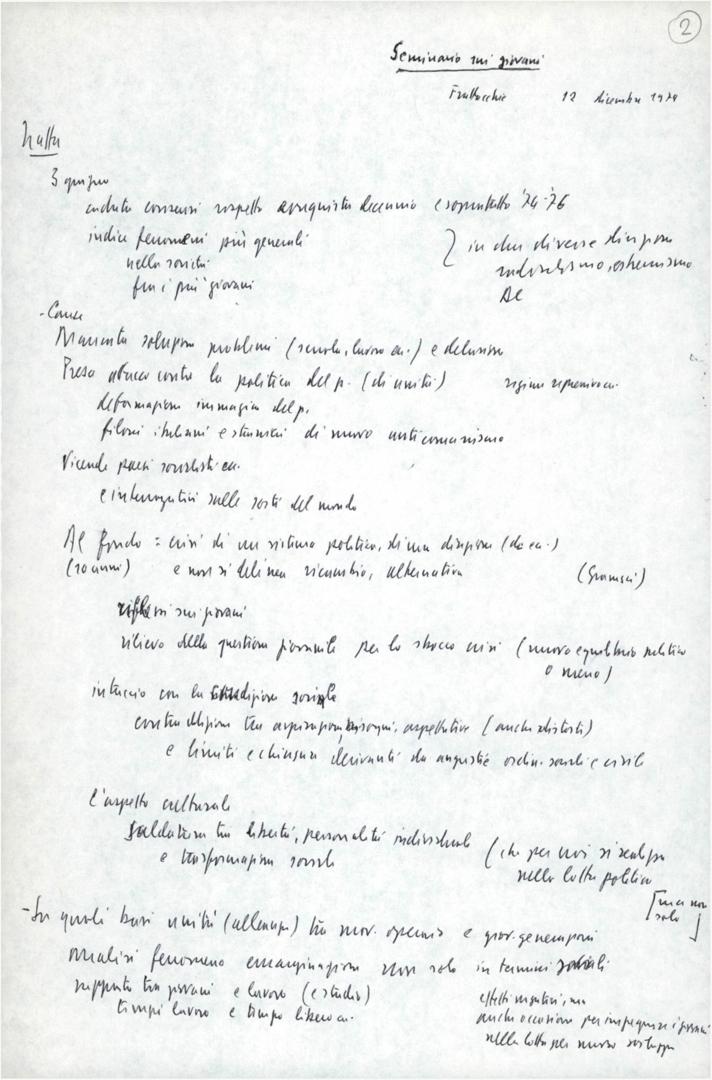 2
Seminario sui giovani
Frattocchie 12 dicembre 1979
Natta
3 giugno
caduta consensi rispetto conquista decennio e soprattutto '74-'76
indice fenomeni più generali } in due diverse direzioni
nella società
fra i più giovani
- Cause
Mancata soluzione problemi (scuola, lavoro ecc.) e delusione
Presa attacco contro la politica del p. (di unità)
deformazione immagine del p.
filoni italiani e stranieri di nuovo anticomunismo
Vicende paesi socialisti ecc.
e interrogativi sulle sorti del mondo
Al fondo = crisi di un sistema politico, di una direzione (dc ecc.)
(10 anni) e non si delinea ricambio, alternativa (Gramsci)
riflessi sui giovani
rilievo della questione giovanile per lo sbocco crisi (nuovo equilibrio politico
o meno)
intreccio con la condizione sociale
contraddizione tra aspirazioni, bisogni, aspettative (anche distorti)
e limiti e chiusure derivanti da angustie ordin. sociale e civile
l'aspetto culturale
Saldatura tra libertà, personalità individuale (che per noi si realizza
e trasformazione sociale nella lotta politica
[ma non
solo]
- Su quali basi unità (alleanza) tra mov. operaio e giov. generazioni
Analisi fenomeno emarginazione non solo in termini sociali
rapporto tra giovani e lavoro (e studio) effetti negativi, ma
tempi lavoro e tempo libero ecc. anche occasione per impegnare i giovani
nella lotta per nuovo sviluppo